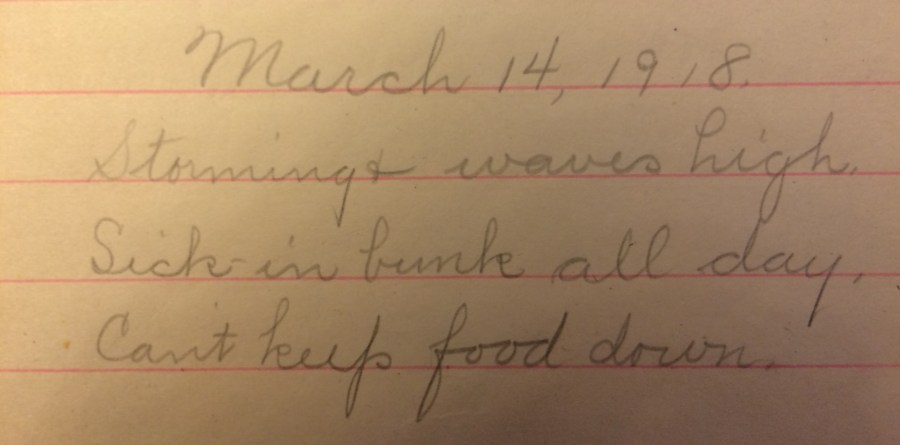 March 14, 1918.
Storming & waves high.
Sick in bunk all day.
Can't keep food down.